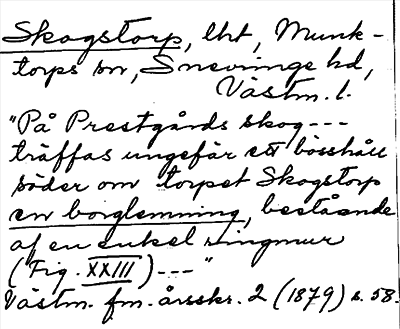 Skogstorp, lht, Munk-
torps sn, Snevringe hd,
Västm. l.
"På Prestgårds skog---
träffas ungefär ett bösshåll
söder om torpet Skogstorp
en borglemning, bestående
af en enkel ringmur
(Fig. XXIII)---"
Västm. fm. årsskr. 2 (1879) s. 58.